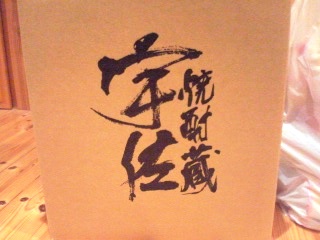 宇佐
焼酎蔵